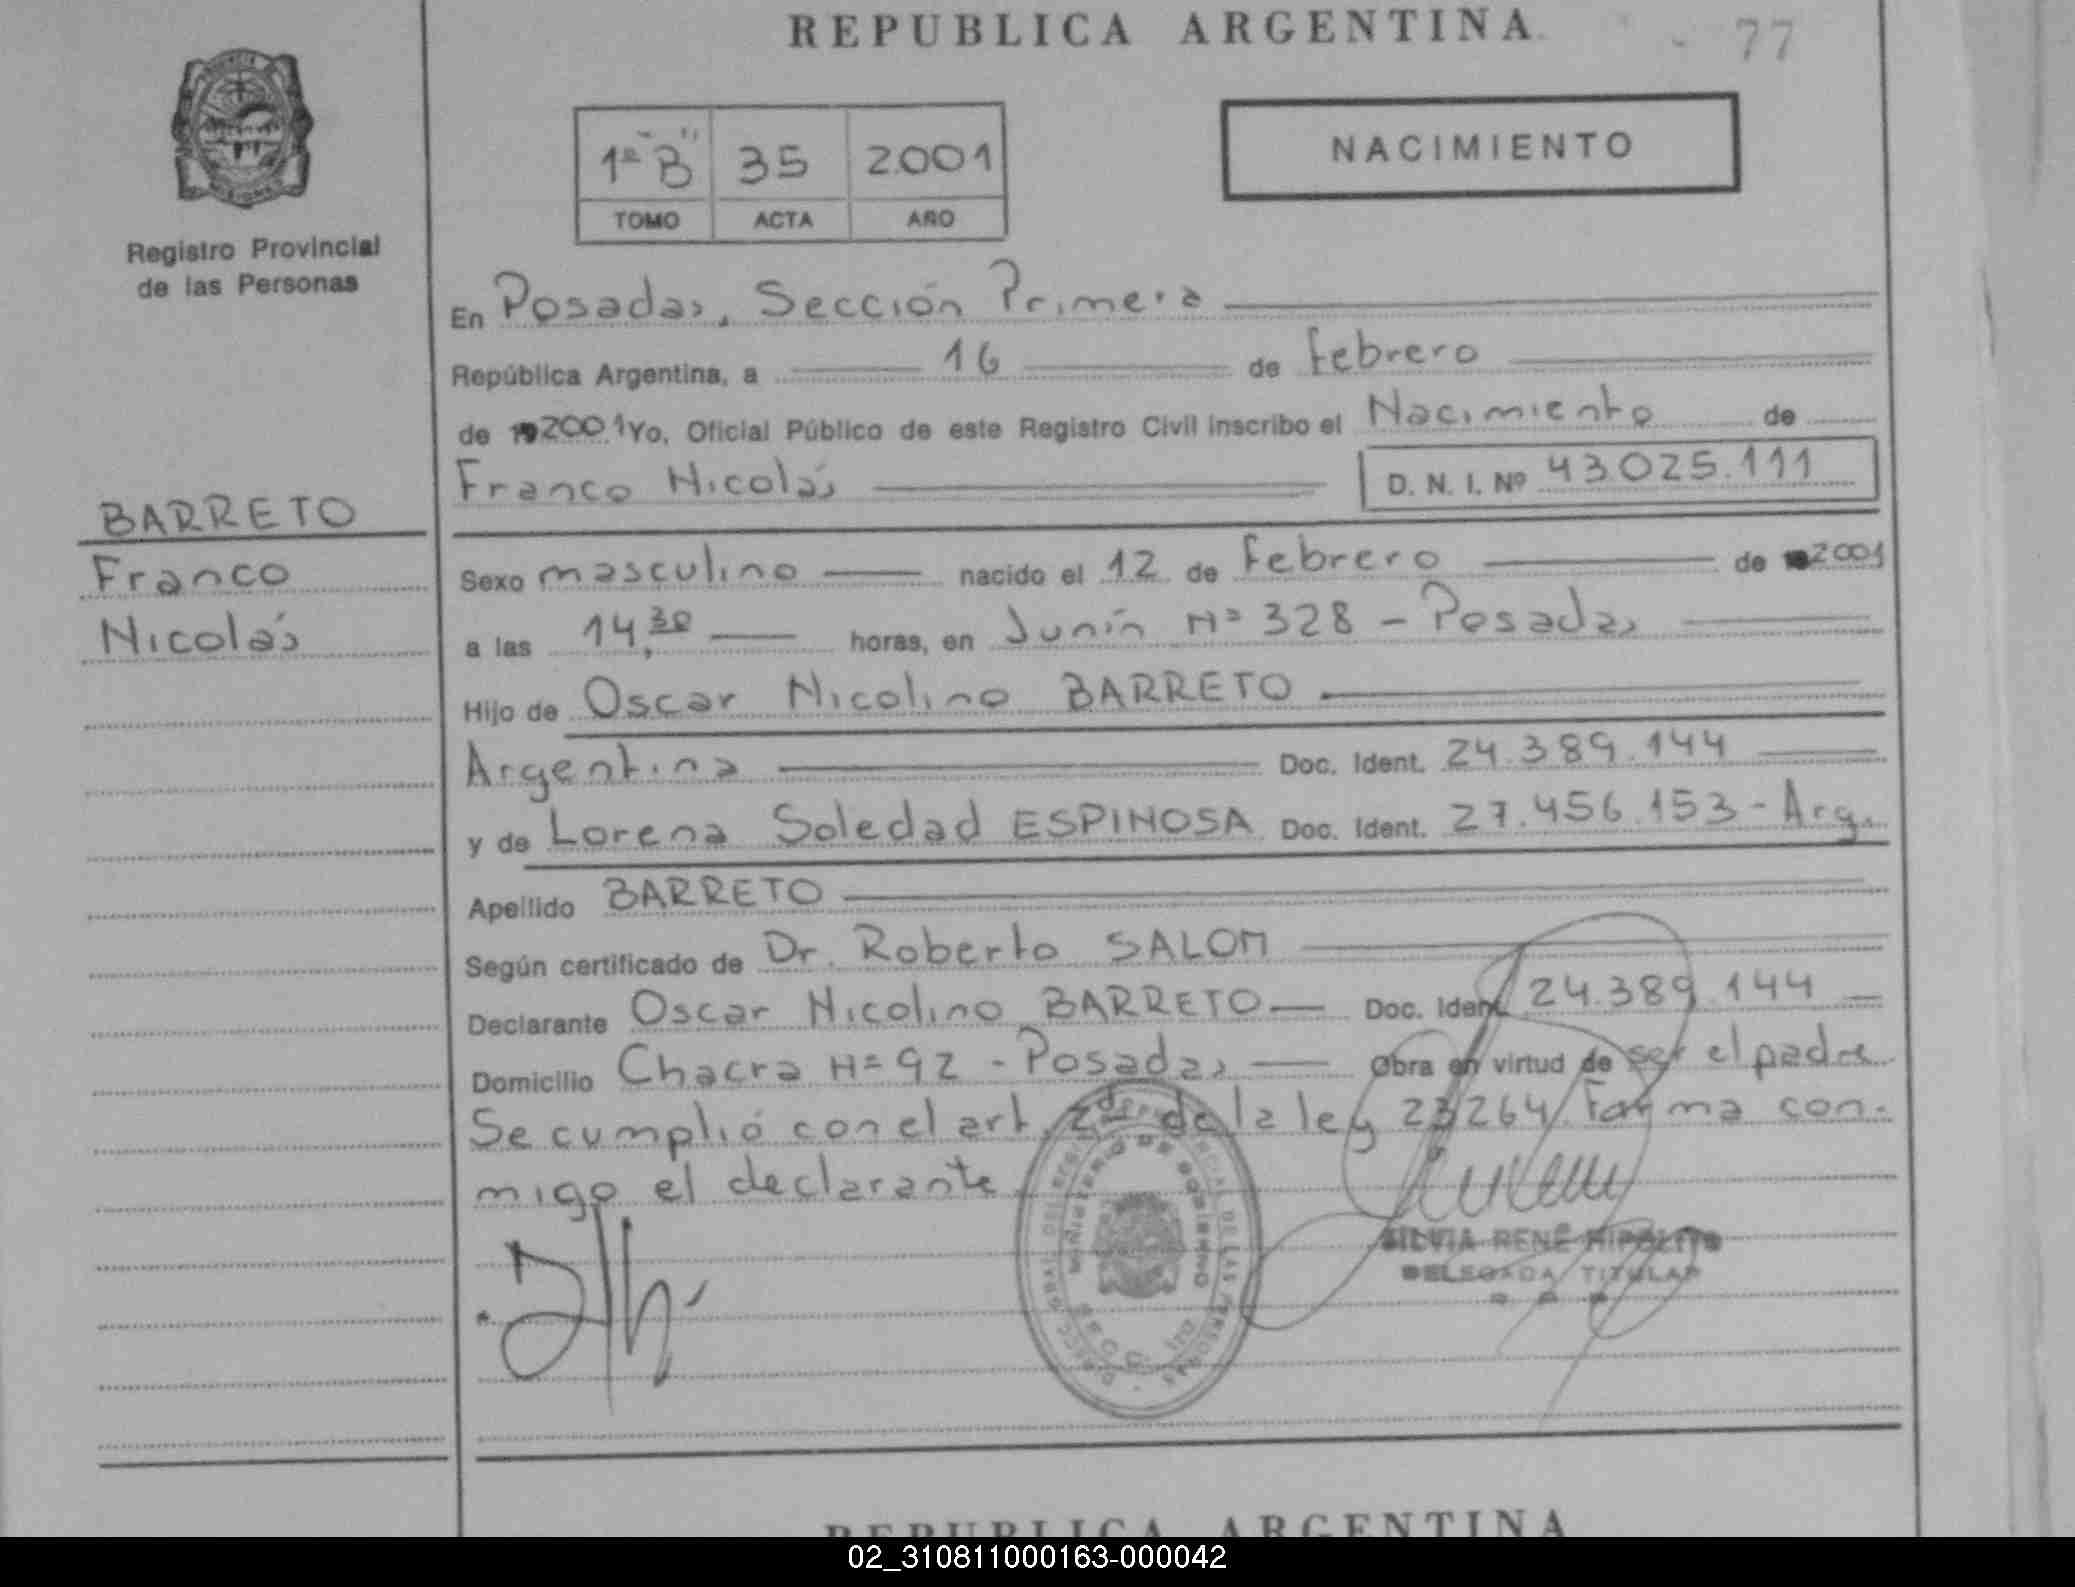 REPUBLICA ARGENTINA
77
Registro Provincial
de las Personas
1º "B" 35 2.001
TOMO ACTA AÑO
NACIMIENTO
En Posadas, Sección Primera
República Argentina, a 16 de febrero
de 192001 Yo, Oficial Público de este Registro Civil inscribo el Nacimiento de
Franco Nicolás D. N. I. Nº 43.025.111
BARRETO
Franco
Nicolás
Sexo masculino nacido el 12 de febrero de 2001
a las 14,30 horas, en Junín Nº 328 - Posadas
Hijo de Oscar Nicolino BARRETO
Argentina Doc. Ident. 24.389.144
y de Lorena Soledad ESPINOSA Doc. Ident. 27.456.153 - Arg.
Apellido BARRETO
Según certificado de Dr. Roberto SALOM
Declarante Oscar Nicolino BARRETO Doc. Ident. 24.389.144
Domicilio Chacra Nº 92 - Posadas Obra en virtud de ser el padre
Se cumplió con el art. 2º de la ley 23264. Forma con-
migo el declarante
MINISTERIO DE GOBIERNO
SILVIA RENÉ HIPÓLITO
DELEGADA TITULAR
REPUBLICA ARGENTINA
02_310811000163-000042